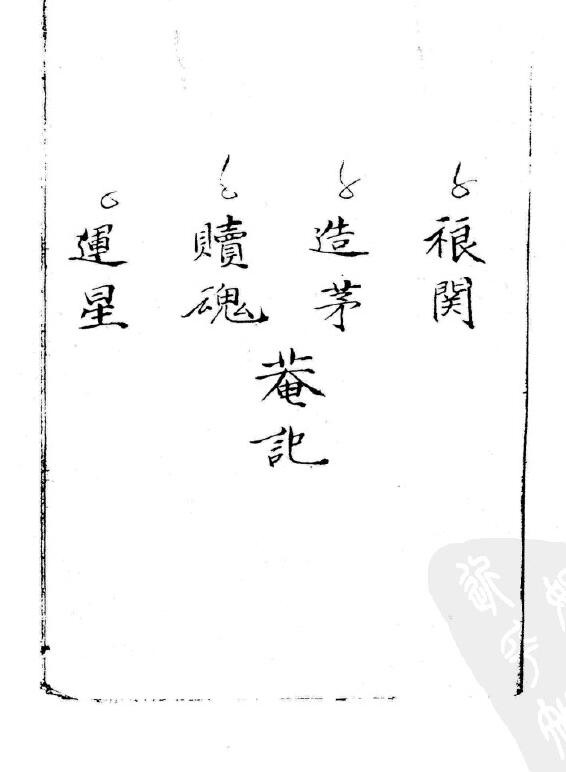 祿関
造茅
贖魂
運星
菴記